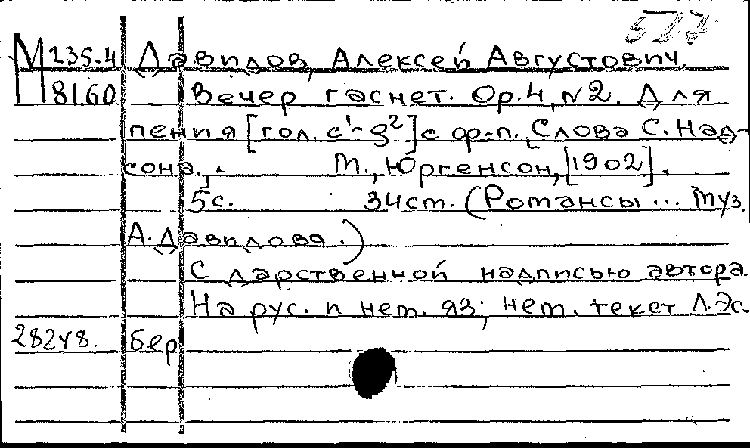 М 235.4 Давидов, Алексей Августович.
8160 Вечер гаснет. Ор.4, N2. Для
пения [гол. c¹-g²] с ф-п. Слова С. Над-
сона. М., Юргенсон, [1902].
5с. 34см. (Романсы ... муз.
А. Давидова.)
С дарственной надписью автора
На рус. и нем. яз; нем. текст Л. Эс.
28248. бер